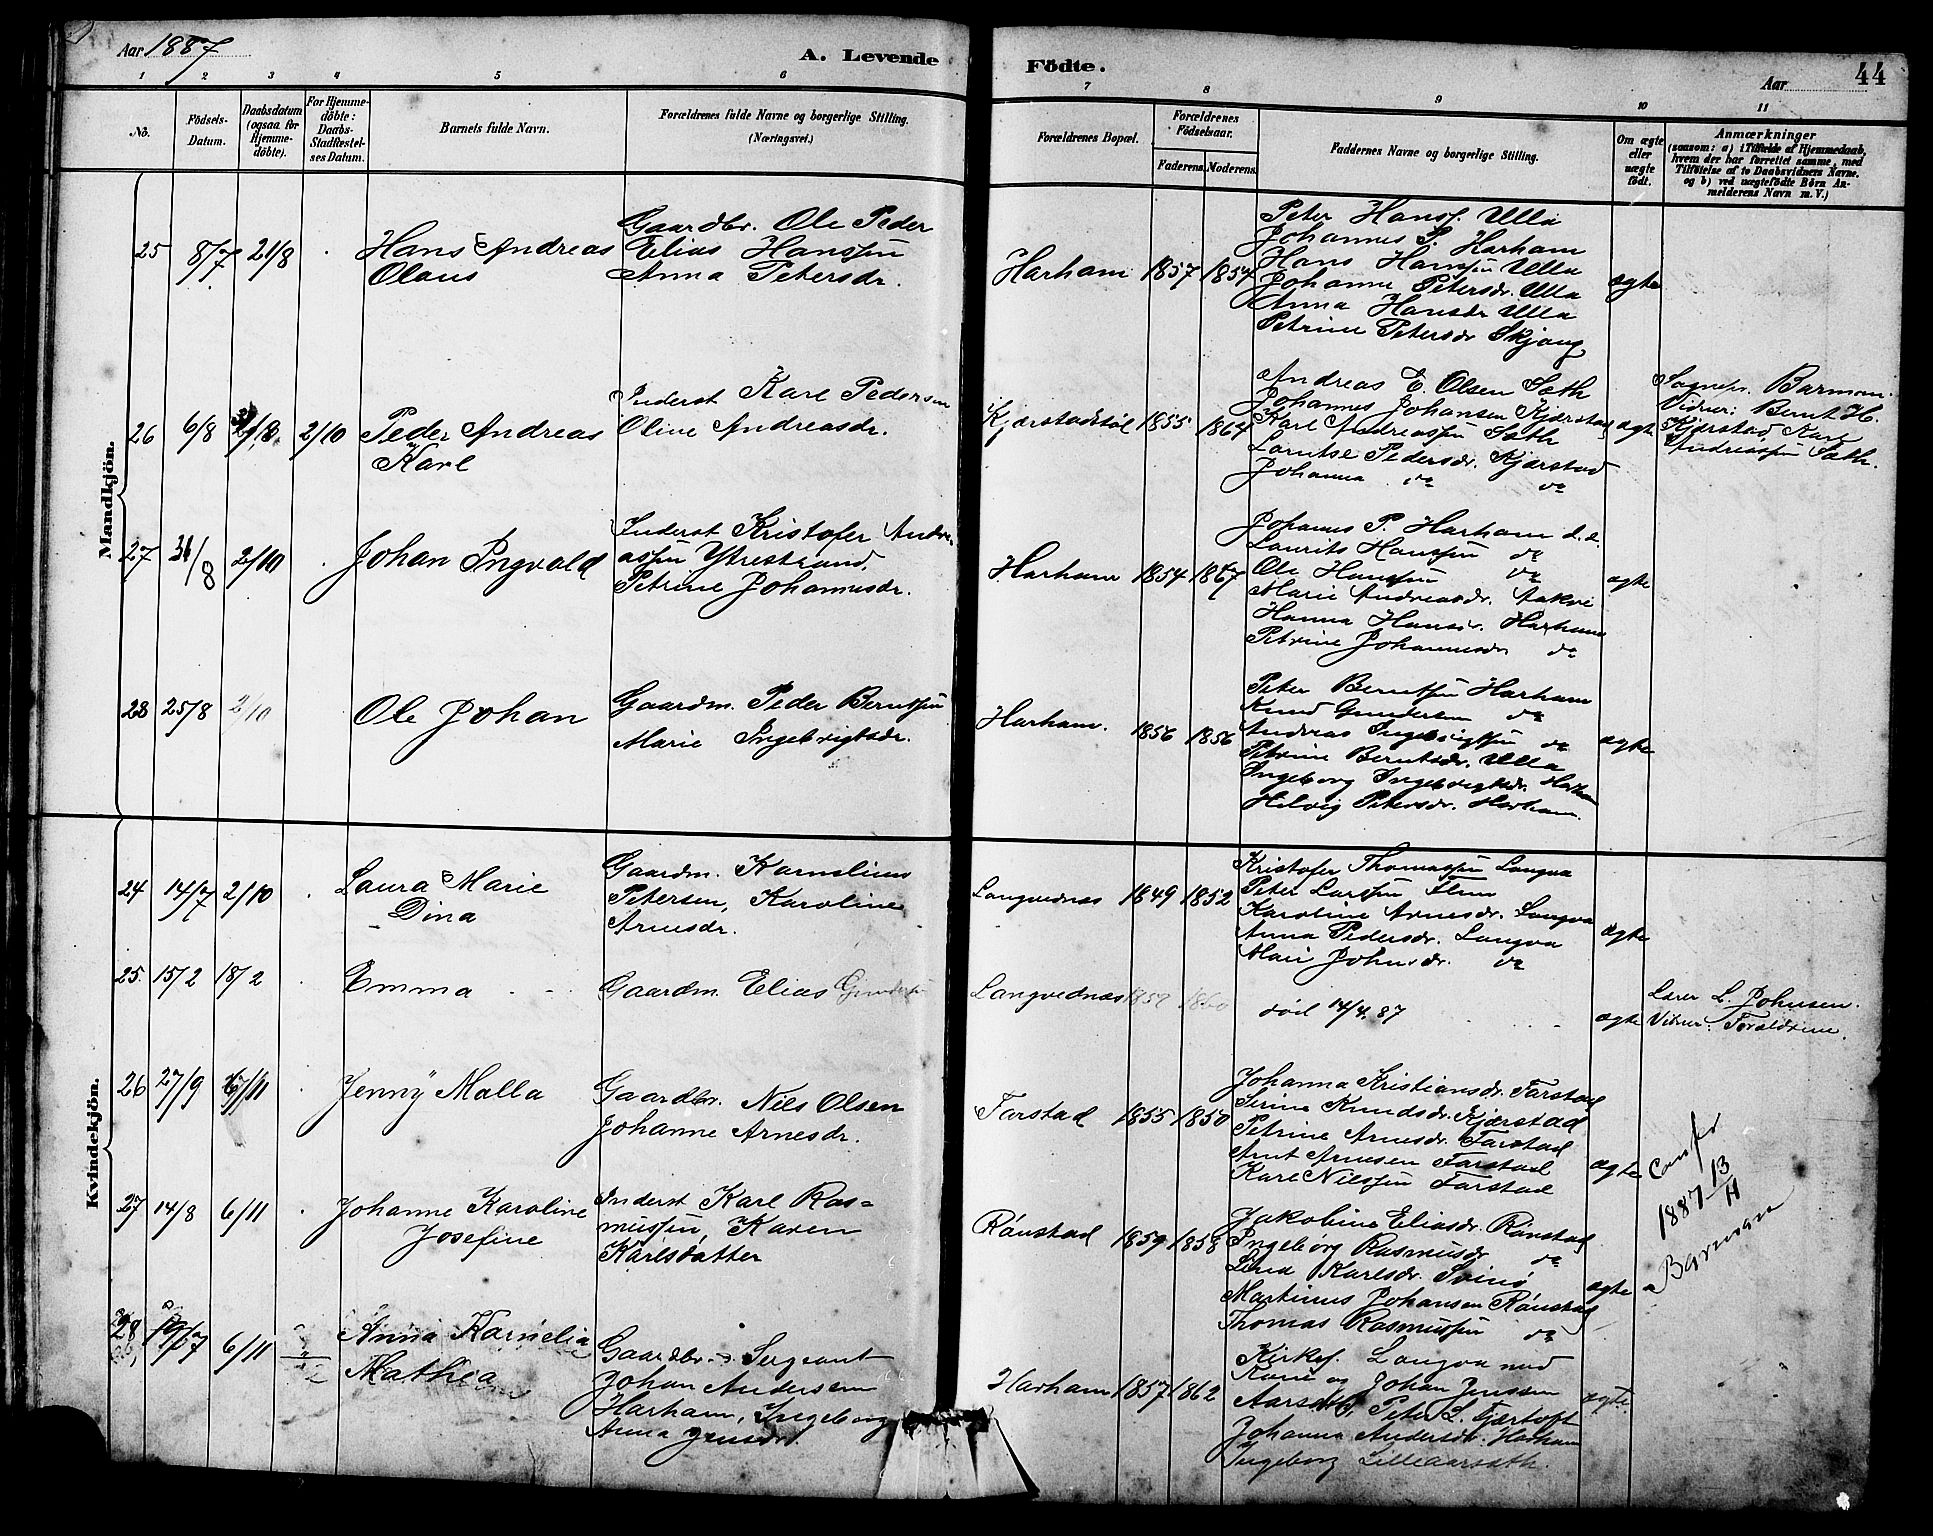 Aar 1887
A. Levende Födte.
Aar
44
1 2 3 4 5 6 7 8 9 10 11
No.
Födsels-Datum.
Daabsdatum (ogsaa for Hjemme-döbte).
For Hjemme-döbte: Daabs-Stadfæstel-ses Datum.
Barnets fulde Navn.
Forældrenes fulde Navne og borgerlige Stilling. (Næringsvei.)
Forældrenes Bopæl.
Forældrenes Födselsaar.
Faderens. Moderens.
Faddernes Navne og borgerlige Stilling.
Om ægte eller uægte födt.
Anmærkninger
(saasom: a) i Tilfælde af Hjemmedaab,
hvem der har forrettet samme, med
Tilføielse af to Daabsvidners Navne.
og b) ved uægtefødte Börn An-
melderens Navn m. V.)
Mandkjön.
25 8/7 21/8 Hans Andreas
Olaus
Gaardbr. Ole Peder
Elias Hanssøn
Anna Petersdr.
Harham 1857 1854
Peter Hanss. Ulla
Johannes P. Harham
Hans Hanssøn Ulla
Johanne Petersdr. Ulla
Anna Hansdr Ulla
Petrine Petersdr Skjong
ægte
26 6/8 2/10 Peder Andreas
Karl
Inderst Karl Pedersen
Oline Andreasdr.
Kjærstadstøl 1855 1864
Andreas E. Olsen Sæth
Johannes Johansen Kjærstad
Karl Andreassøn Sæth
Lauritse Pedersdr. Kjærstad
Johanna do do
ægte
Sognepr. Barman.
Vidner: Bernt H.
Kjærstad, Karl
Andreassøn Sæth.
27 31/8 2/10 Johan Ingvald
Inderst Kristofer Andre-
assøn Ytrestrand,
Petrine Johannesdr.
Harham 1854 1867
Johannes P. Harham d. e.
Laurits Hanssøn do
Ole Hanssøn do
Marie Andreasdr. Aakre
Hanna Hansdr. Harham
Petrine Johannesdr do
ægte
28 25/8 2/10 Ole Johan
Gaardm. Peder Berntsøn
Marie Ingebrigtsdr.
Harham. 1856 1856
Peter Berntsøn Harham
Knud Gundersen do
Andreas Ingebrigtsøn do
Petrine Berntsdr. Ulla
Ingeborg Ingebrigtsdr. Harham
Helvig Petersdr. Harham.
ægte
Kvindekjön.
24 14/7 2/10 Laura Marie
Dina
Gaardm. Kornelius
Petersen, Karoline
Arnesdr.
Longvednæs 1849 1852
Kristofer Thomassøn Longva
Peter Larssøn
Karoline Arnesdr. Longva
Anna Pedersdr. Longva
Mari Johnsdr. do
ægte
25. 15/2 18/2 Emma
Gaardm. Elias Gundersøn
Longvednæs 1859 1860
död 14/4. 87
ægte
Lærer L. Johnsen.
Vidner: Forældrene.
26 27/9 Jenny Malla
Gaardbr. Nils Olsen
Johanne Arnesdr.
Farstad 1855 1850
Johanna Kristiansdr. Farstad
Serine Knudsdr. Kjærstad
Petrine Arnesdr. Farstad
Arnt Arnesen Farstad
Karl Nilssøn Farstad
ægte
27 14/8 6/11 Johanne Karoline
Josefine
Inderst Karl Ras-
mussøn, Karen
Karlsdatter
Rønstad 1859 1858
Jakobine Eliasdr. Rønstad
Ingeborg Rasmusdr do
Lina Karlsdr. Svinø
Martinus Johansen Rønstad
Thomas Rasmussøn do
ægte
Confr
1887 13/11
Barman
28 6/11 Anna Kornelia
Mathea
Gaardbr. Sergeant
Johan Andersen
Harham, Ingeborg
Anna Jensdr.
Harham 1857 1862
Kirkes. Longva med
Kone og Johan Jenssen
Aarsæth, Peter L. Fjærtoft
Johanna Andersdr. Harham
Ingeborg Lilleaarsæth.
ægte